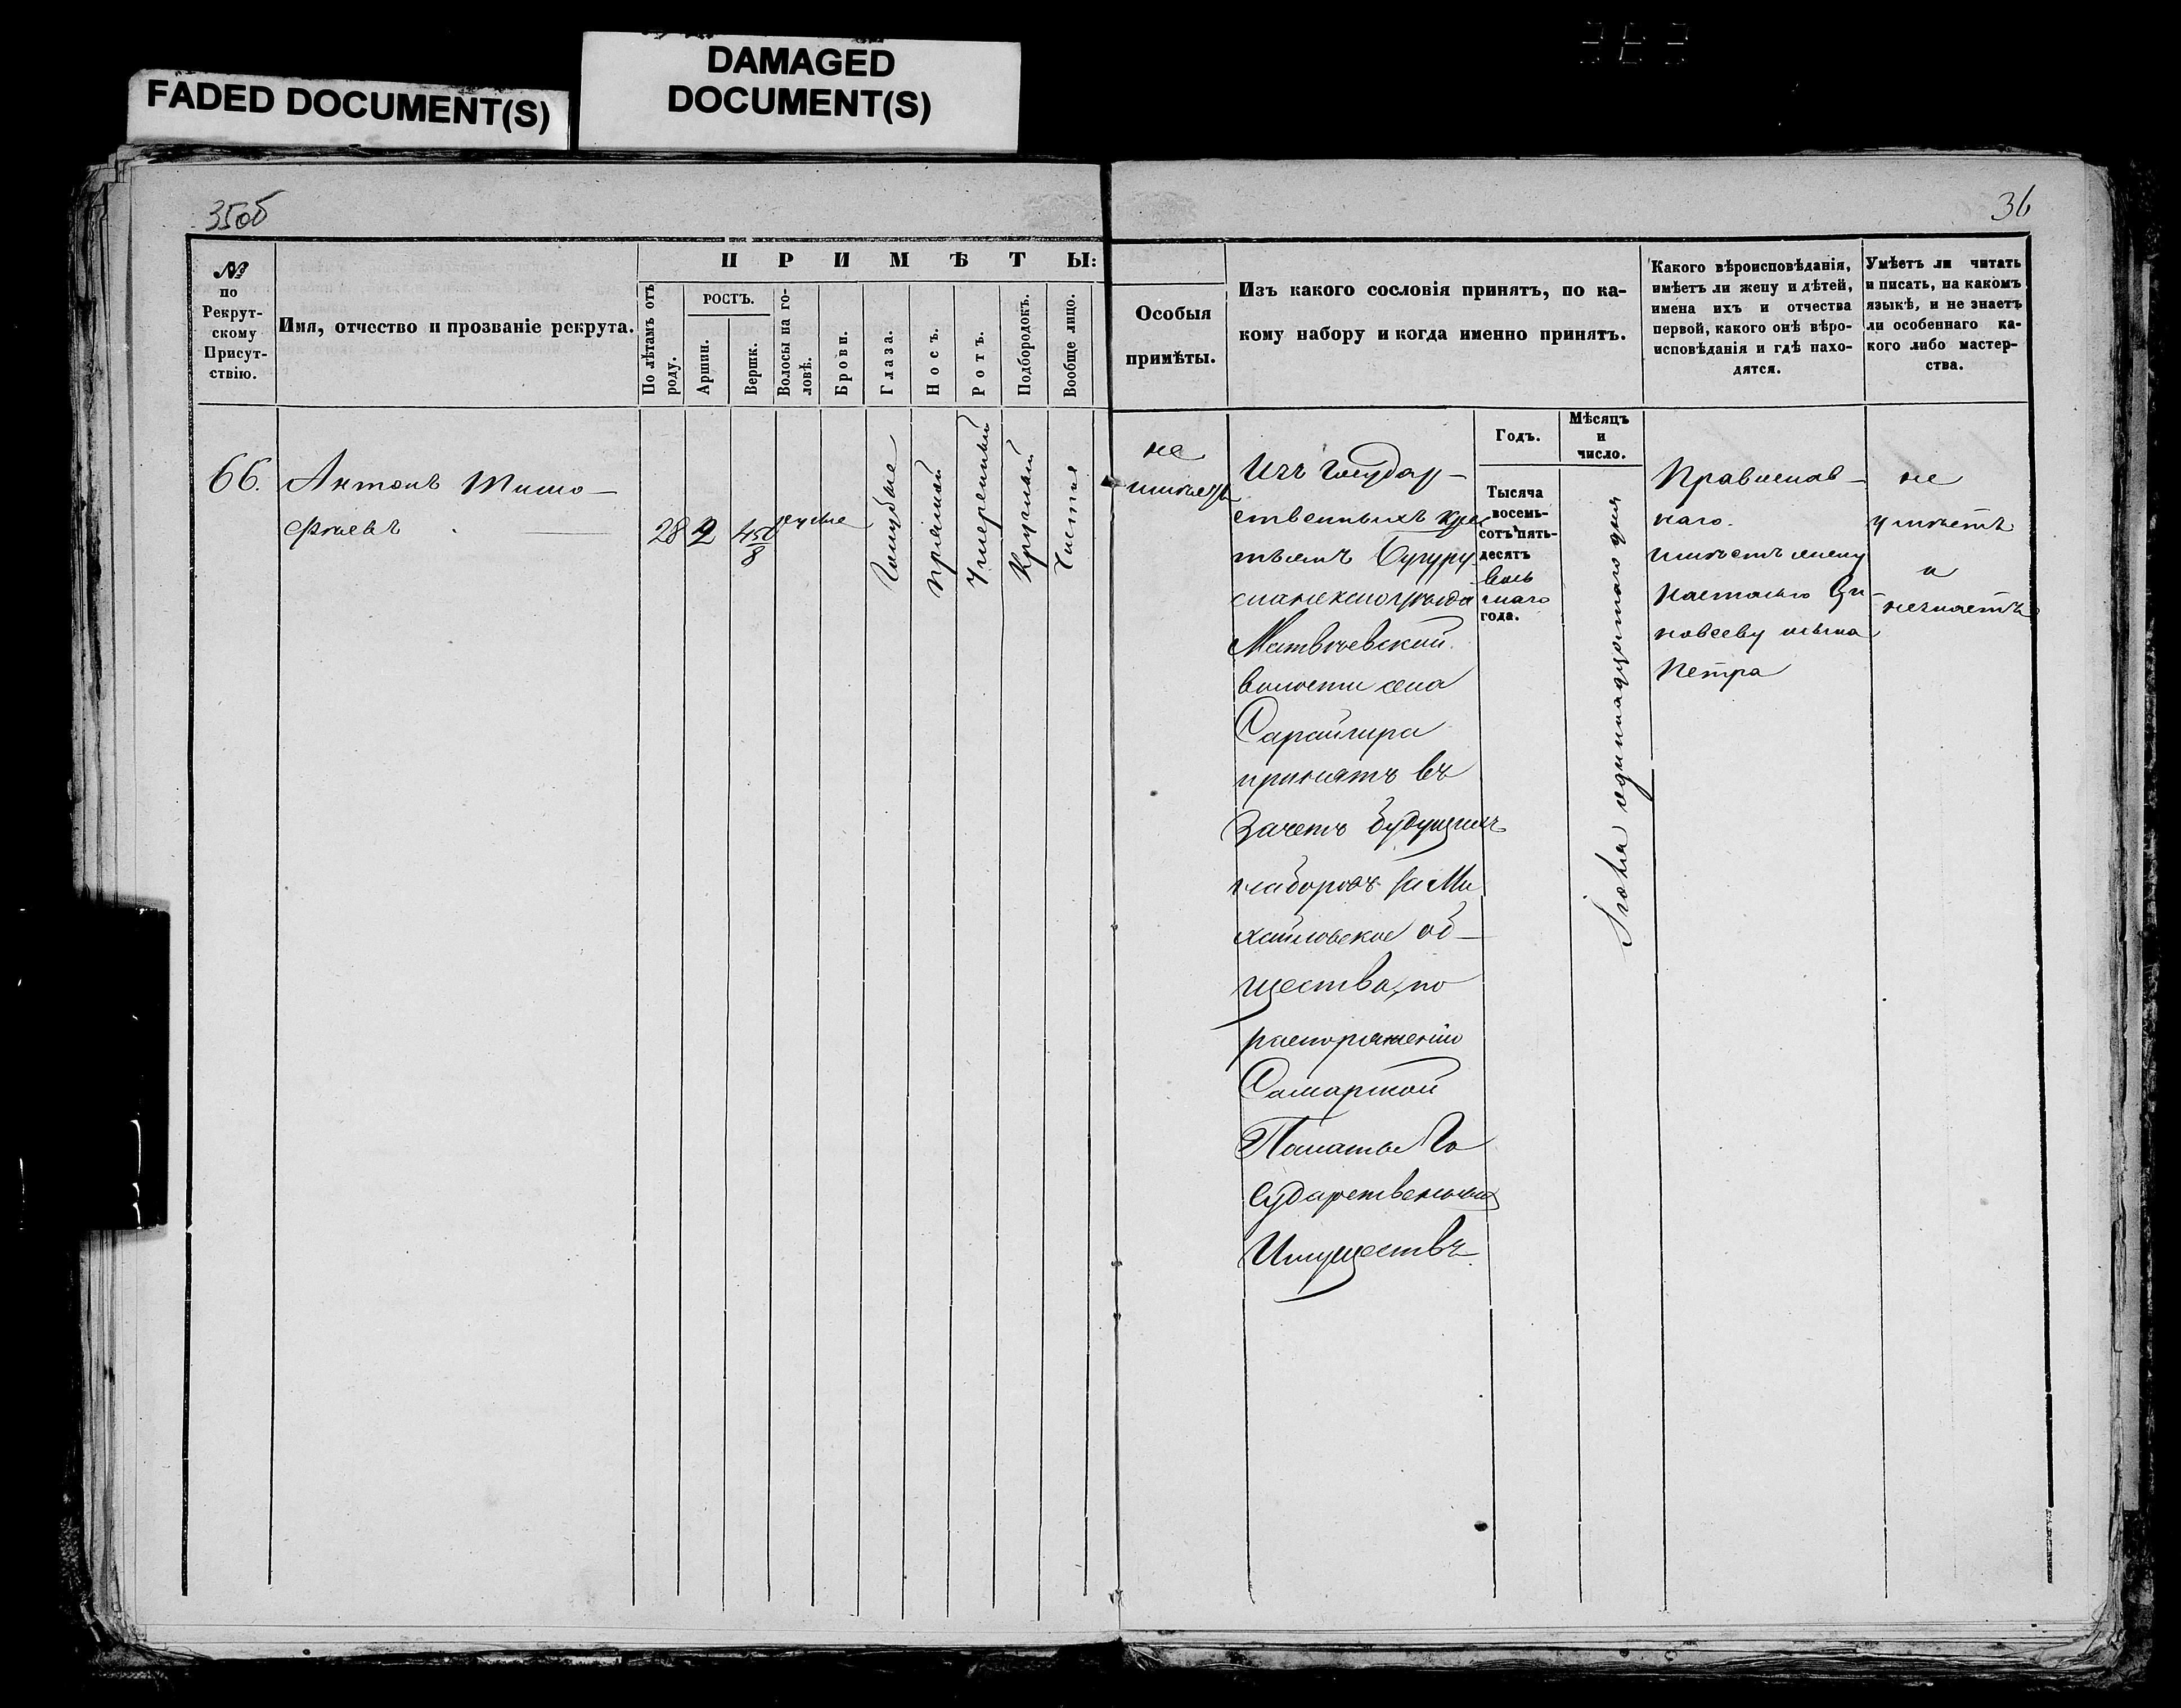 FADED DOCUMENT(S)
DAMAGED
DOCUMENT(S)
35об
36
№
по
Рекрут-
скому
Присут-
ствію.
Имя, отчество и прозваніе рекрута.
ПРИМѢТЫ:
По лѣтамъ отъ
роду.
РОСТЪ.
Аршин.
Вершк.
Волосы на го-
ловѣ.
Брови.
Глаза.
Носъ.
Ротъ.
Подбородокъ.
Вообще лицо.
Особыя
примѣты.
Изъ какого сословія принятъ, по ка-
кому набору и когда именно принятъ.
Годъ.
Мѣсяцъ
и
число.
Какого вѣроисповѣданія,
имѣетъ ли жену и дѣтей,
имена ихъ и отчества
первой, какого онѣ вѣро-
исповѣданія и гдѣ нахо-
дятся.
Умѣетъ ли читать
и писать, на какомъ
языкѣ, и не знаетъ
ли особеннаго ка-
кого либо мастер-
ства.
66.
Антонъ Тимо-
фѣевъ
28
2
4 5/8
русые
Голубые
Прямой
Умеренный
Круглый
Чистое
не
имеетъ
Изъ Государ-
ственныхъ крес
тьянъ Бугуру
сланскаго уѣзда
Матвѣевской
волости села
Сарайгира
принятъ въ
Зачетъ будущихъ
наборовъ за Ми
хайловское об-
щество, по
распоряженію
Самарской
Палаты Го
сударственныхъ
Имуществъ
Тысяча
восемь-
сотъ пять-
десятъ
вось
маго
года.
Іюля одиннадцатаго дня
Православ-
наго.
имѣетъ жену
Настасью Зи-
новьеву сына
Петра
не
умѣетъ
и
незнаетъ